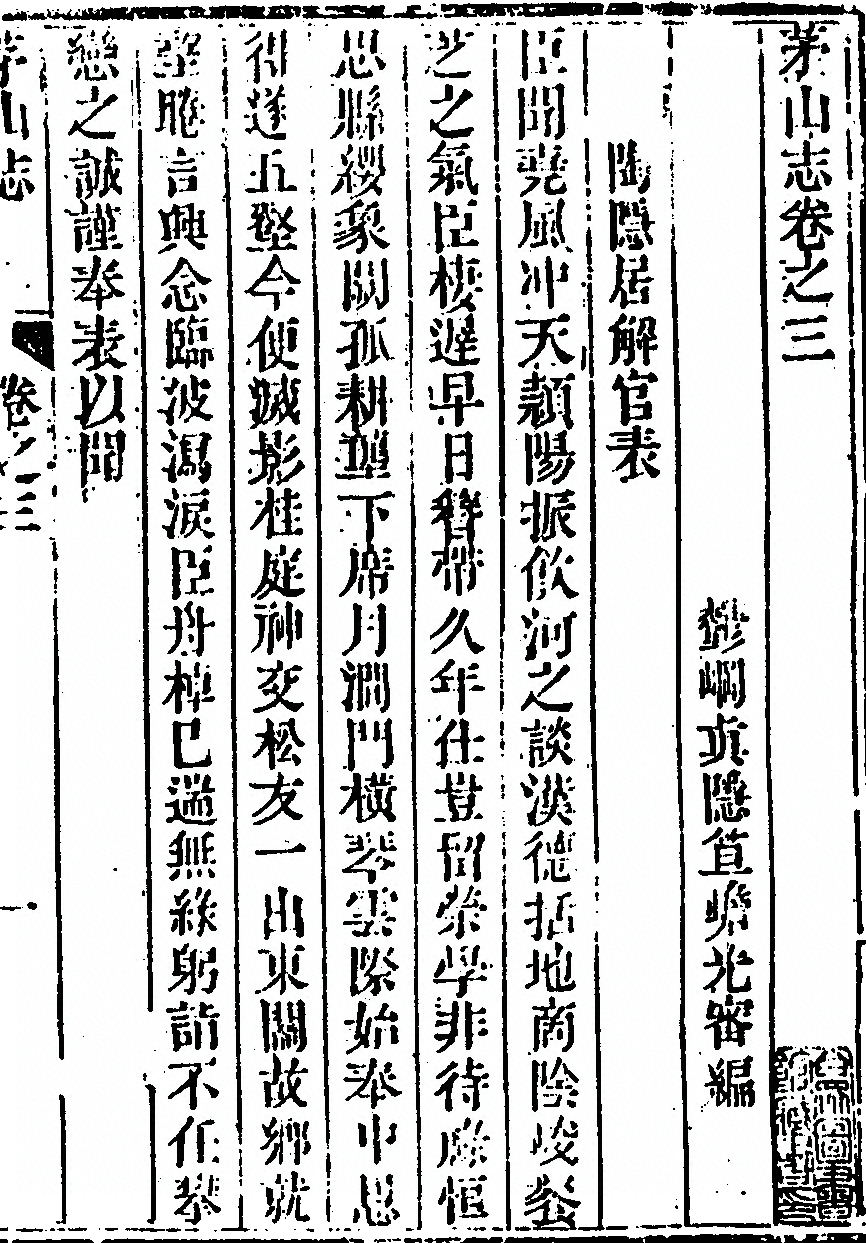 茅山志卷之三
鬱岡真隱笪蟾光審編
陶隱居解官表
臣聞堯風冲天頴陽振飲河之談漢德括地商陰峻餐
芝之氣臣棲遲早日簪帶久年仕豈留榮學非待祿恒
思縣纓象闕孤耕壟下席月澗門橫琴雲際始奉中恩
得遂丘壑今便滅影桂庭神交松友一出東關故鄉就
望睠言興念臨波瀉淚臣舟棹已遄無緣躬詣不任攀
戀之誠謹奉表以聞
茅山志
卷之三
一